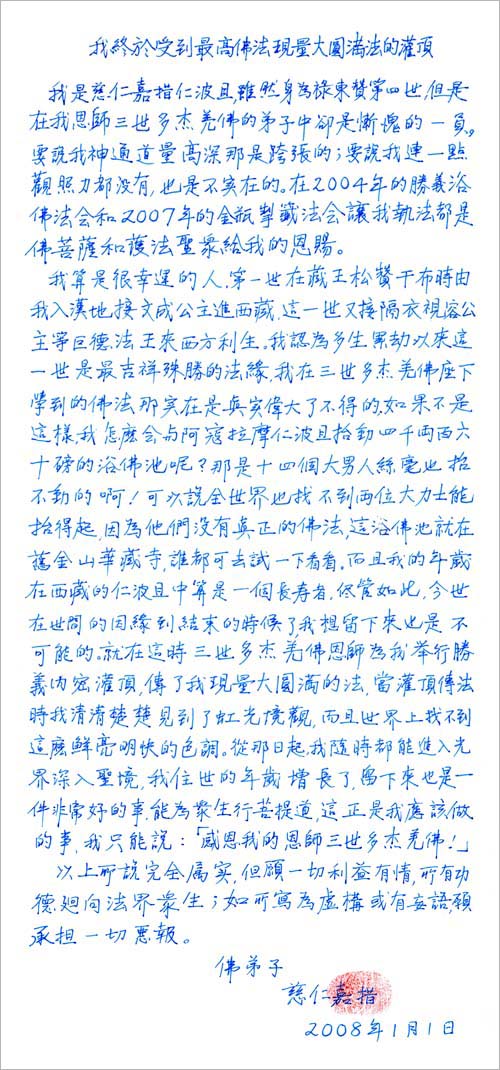 我終於受到最高佛法現量大圓滿法的灌頂
我是慈仁嘉措仁波且,雖然身為祿東贊第四世,但是
在我恩師三世多杰羌佛的弟子中卻是慚愧的一員。
要說我神通道量高深那是跨張的;要說我連一點
觀照力都没有,也是不实在的。在2004年的勝義浴
佛法会和2007年的金瓶掣籤法会讓我執法都是
佛菩薩和護法聖衆給我的恩賜。
我算是很幸運的人,第一世在藏王松贊干布時由
我入漢地接文成公主進西藏,這一世又接隔衣視容公
主寧巨德法王來西方利生。我認為多生累劫以來這
一世是最吉祥殊勝的法緣,我在三世多杰羌佛座下
學到的佛法那实在是真实偉大了不得的,如果不是
這樣,我怎麽会与阿寇拉摩仁波且抬動四千両百六
十磅的浴佛池呢?那是十四個大男人絲毫也抬
不動的啊!可以說全世界也找不到両位大力士能
抬得起,因為他們沒有真正的佛法,這浴佛池就在
舊金山華藏寺,誰都可去試一下看看。而且我的年歲
在西藏的仁波且中算是一個長寿者,侭管如此,今世
在世間的因緣到結束的時候了,我想留下來也是不
可能的。就在這時三世多杰羌佛恩師為我举行勝
義内密灌頂,傳了我現量大圓滿的法,當灌頂傳法
時我清清楚楚見到了虹光境觀,而且世界上找不到
這麽鮮亮明快的色調。從那日起,我隨時都能進入光
界深入聖境,我住世的年歲增長了,留下來也是一
件非常好的事,能為衆生行菩提道,這正是我應該做
的事,我只能說:「感恩我的恩師三世多杰羌佛!」
以上所說完全属实,但願一切利益有情,所有功
德廻向法界衆生;如所寫為虚構或有妄語,願
承担一切悪報。
佛弟子
慈仁嘉措
2008年1月1日